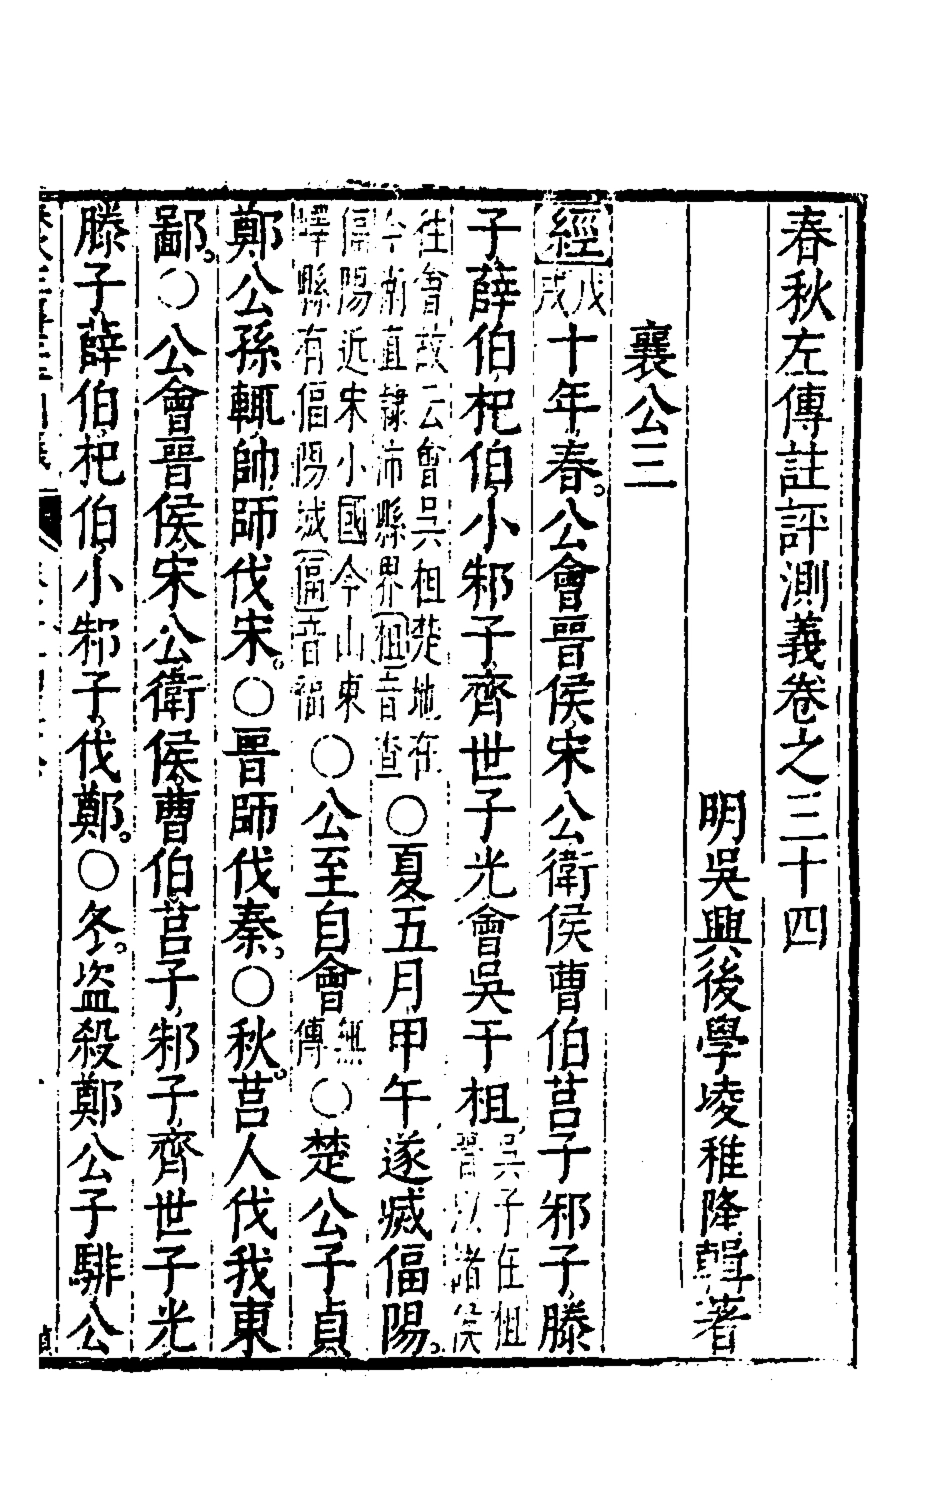 春秋左傳註評測義卷之三十四
明吳興後學凌稚隆輯著
襄公三
經戊戌十年春。公會晉侯宋公衛侯曹伯莒子邾子滕
子薛伯杞伯小邾子齊世子光會吳于柤吳子在柤晉以諸侯
往會故云會吳柤楚地在今南直隸沛縣界柤音查○夏五月甲午遂滅偪陽。
偪陽近宋小國今山東嶧縣有偪陽城偪音福○公至自會無傳○楚公子貞
鄭公孫輒帥師伐宋。○晉師伐秦。○秋。莒人伐我東
鄙。○公會晉侯宋公衛侯曹伯莒子邾子齊世子光
滕子薛伯杞伯小邾子伐鄭。○冬。盜殺鄭公子騑公